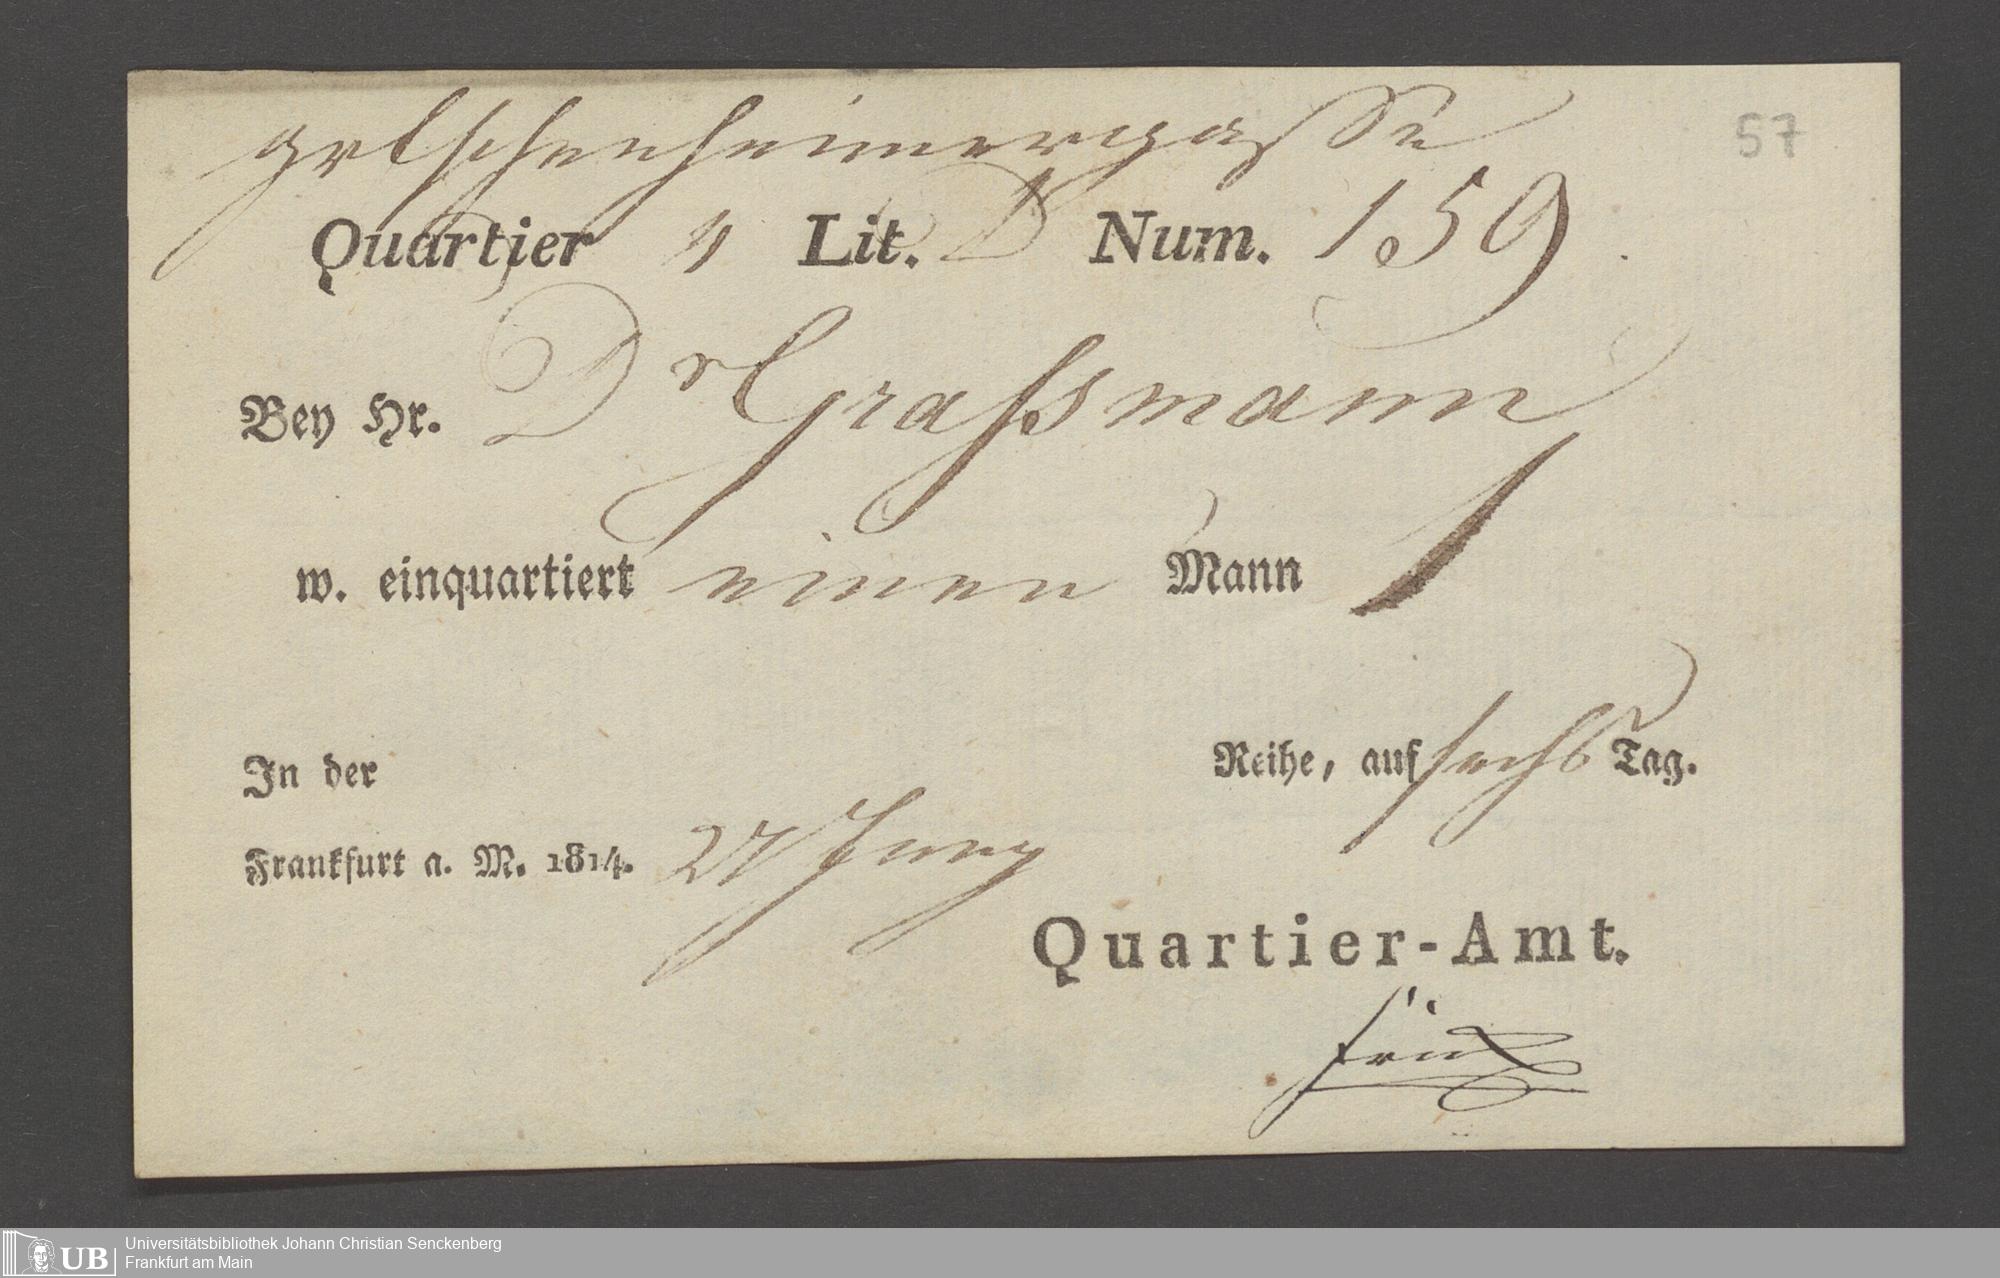 gr Eschenheimergasse
57
Quartier 4 Lit. D Num. 159
Bey Hr. Dr Graſsmann
w. einquartiert einen Mann 1
In der Reihe, auf sechs Tag.
Frankfurt a. M. 1814. 27 Juny
Quartier-Amt.
UB
Universitätsbibliothek Johann Christian Senckenberg
Frankfurt am Main